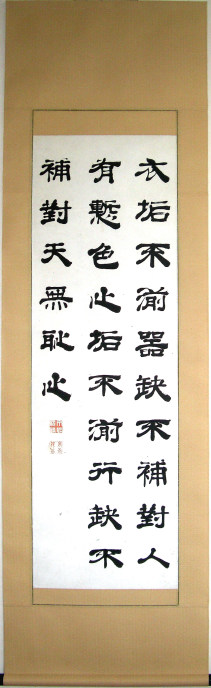 衣垢不湔器缺不補對人
有慙色心垢不湔行缺不
補對天無恥心